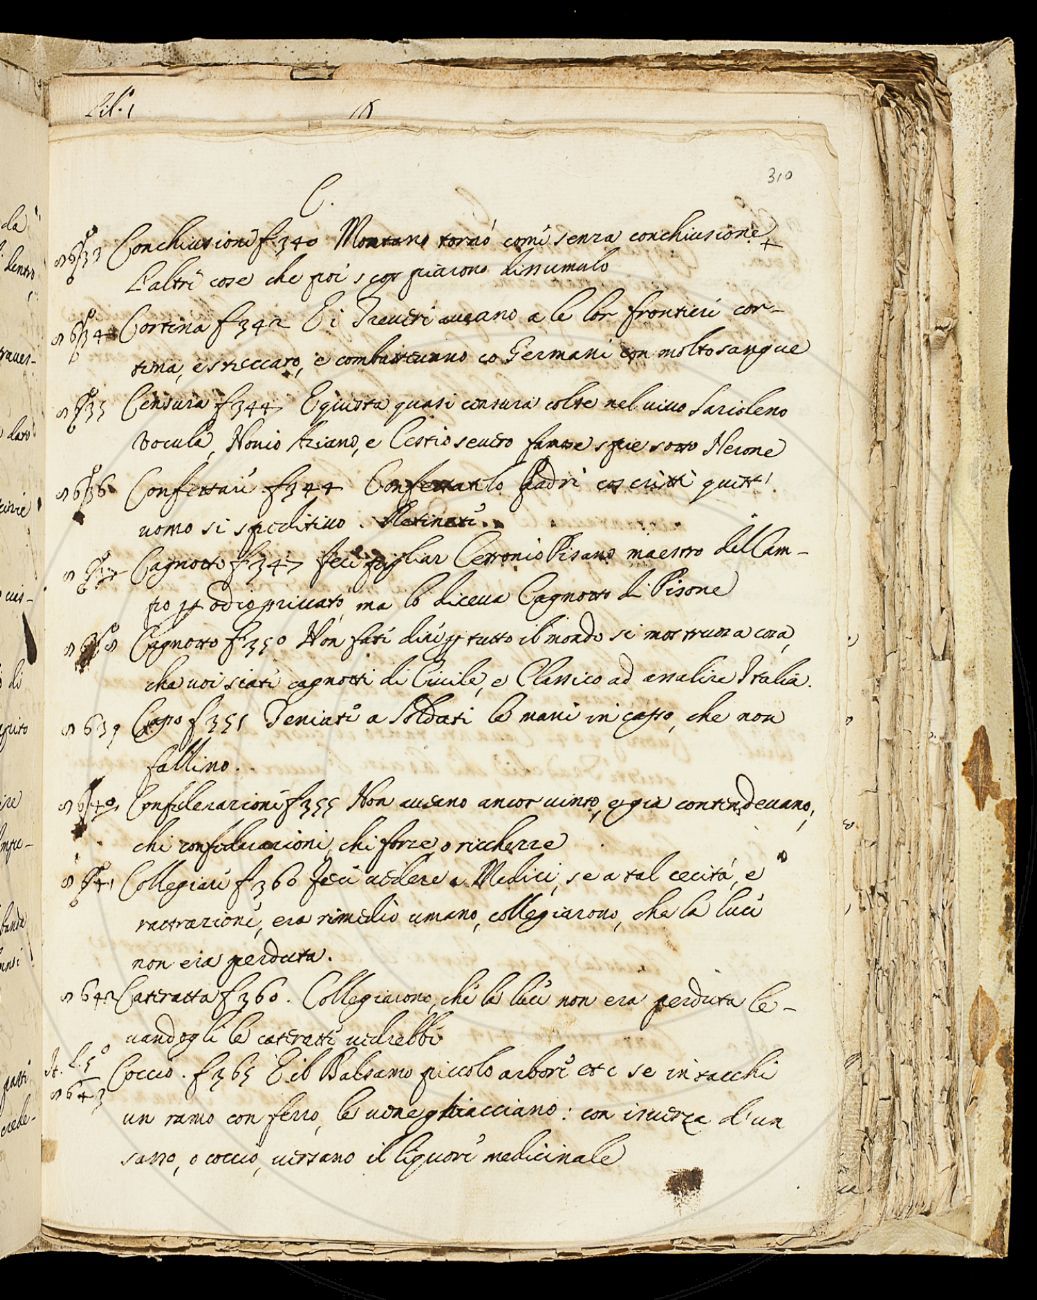 Lib. 1
310
C.
Conchiusione f. 340 Montano tornò come senza conchiusione
L'altre cose che poi scoppiarono dissimulò
Cortina f 342 E i Treveri aveano a le lor frontiere cor-
tina, e steccato, e combatterono co Germani con molto sangue
Censura f 344 E giusta quasi censura colse nel vivo Sarioleno
Vocula, Nonio Aziano, e Cestio severo famose spie sotto Nerone
Confettare f 344 Confettando Padri coscritti quest'
uomo si speditivo.
Cagnotto f 347 fece pigliar Cetronio Pisano maestro del Cam-
po pr odio privato, ma lo diceva Cagnotto di Pisone
Cagnotto f 350 Non fate dire pr tutto il mondo si mostruosa cosa,
che voi siate cagnotti di Civile, e Classico ad assalire Italia.
639 Capo f 351 Teniate a Soldati le mani in capo, che non
fallino.
640 Confiderazione f 355 Non aveano ancor vinto, e già contendevano,
chi confiderazioni, chi forze o ricchezze
Collegiare f 360 fece vedere a Medici, se a tal cecità, e
rattrazione, era rimedio umano, collegiarono, che la luce
non era perduta.
642 Cateratta f 360. Collegiarono, che la luce non era perduta le-
vandogli le cateratte vedrebbe
St. L. 5°
643 Coccio. f 365 E il Balsamo piccolo arbore etc se intacchi
un ramo con ferro, le vene ghiacciano: con ischerza d'un
sasso, o coccio, versano il liquore medicinale